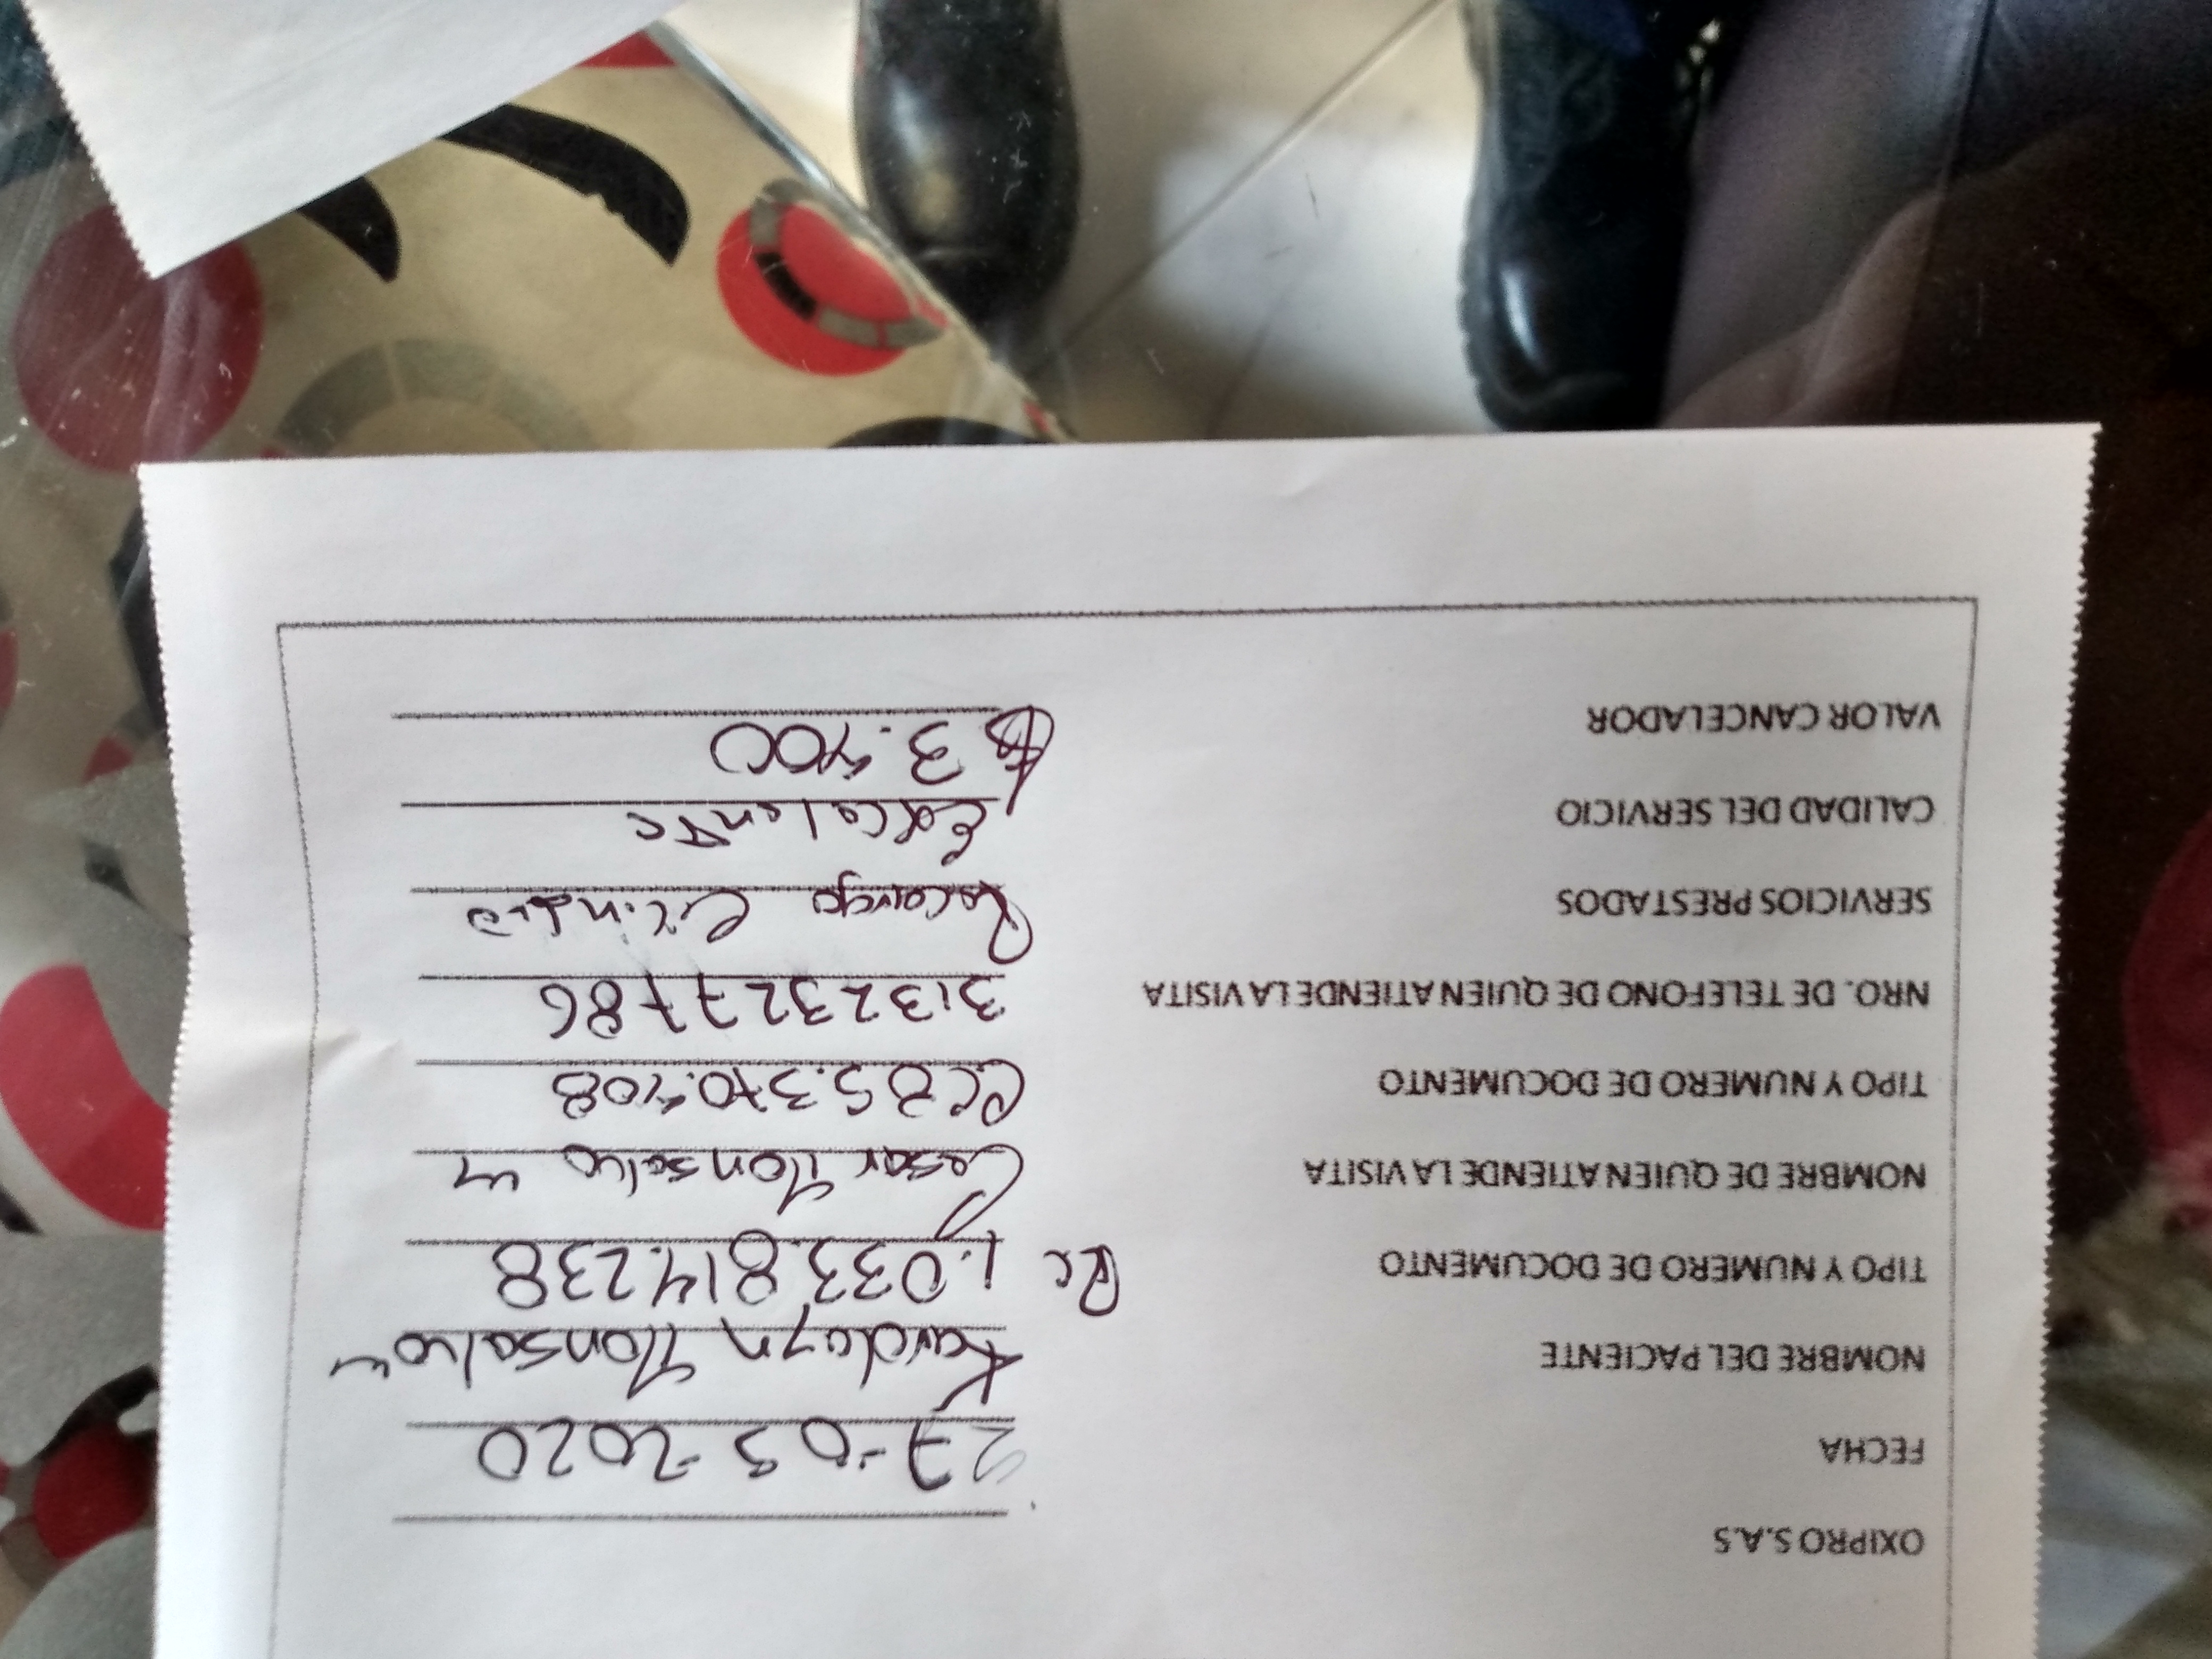 OXIPRO S.A.S
FECHA 27-03-2020
NOMBRE DEL PACIENTE Monsalve
TIPO Y NUMERO DE DOCUMENTO Rc 1.033.814.238
NOMBRE DE QUIEN ATIENDE LA VISITA Cesar Monsalve
TIPO Y NUMERO DE DOCUMENTO CC 85.370.508
NRO. DE TELEFONO DE QUIEN ATIENDE LA VISITA 3132327786
SERVICIOS PRESTADOS Recarga Cilindro
CALIDAD DEL SERVICIO
VALOR CANCELADOR $3.400